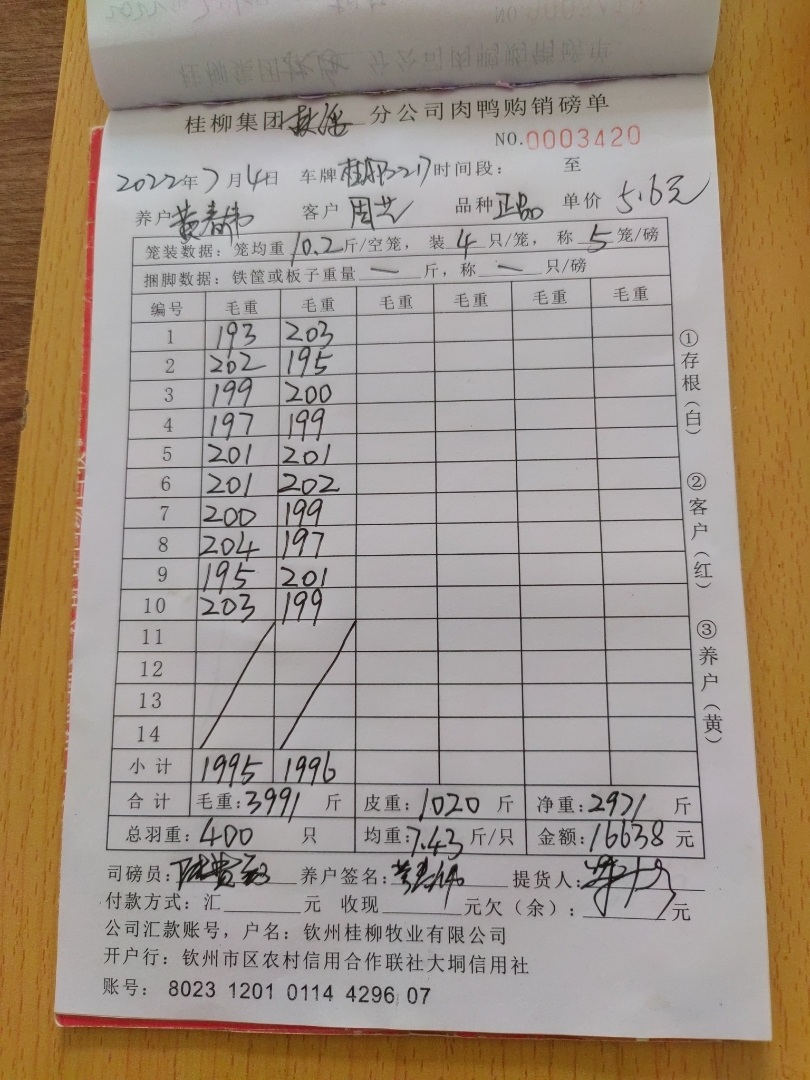 桂柳集团 分公司肉鸭购销磅单
NO.0003420
2022年7月4日 车牌桂 217时间段: 至
养户黄春伟 客户周艺 品种正品 单价5.6元
笼装数据:笼均重10.2斤/空笼,装4只/笼,称5笼/磅
捆脚数据:铁筐或板子重量一斤,称一只/磅
编号 毛重 毛重 毛重 毛重 毛重 毛重
1 193 203
2 202 195
3 199 200
4 197 199
5 201 201
6 201 202
7 200 199
8 204 197
9 195 201
10 203 199
11
12
13
14
小计 1995 1996
合计 毛重:3991斤 皮重:1020斤 净重:2971斤
总羽重:400只 均重:7.43斤/只 金额:16638元
司磅员: 养户签名:黄春伟 提货人:
付款方式:汇 元 收现 元欠(余): 元
公司汇款账号,户名:钦州桂柳牧业有限公司
开户行:钦州市区农村信用合作联社大垌信用社
账号: 8023 1201 0114 4296 07
①存根(白)
②客户(红)
③养户(黄)